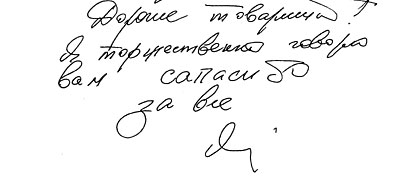 Дорогие товарищи!
Я торжественно говорю
вам сапасибо
за все